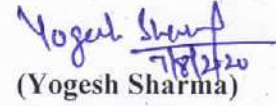 Yogesh Sharma
7/8/2020
(Yogesh Sharma)